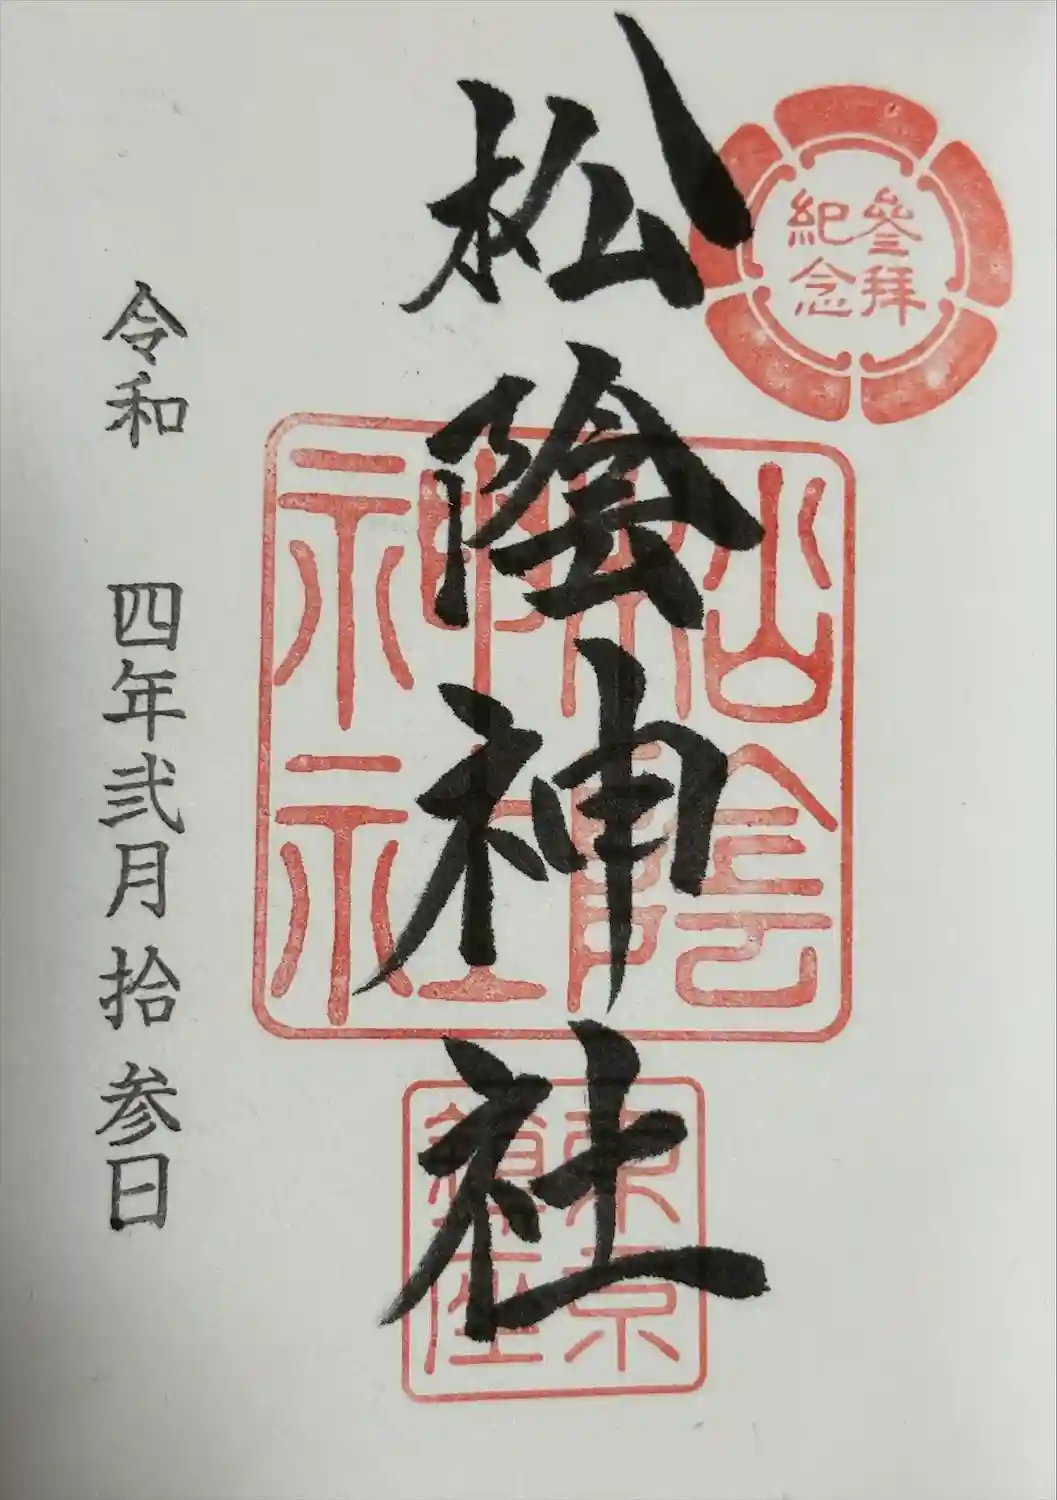 参拜
紀念
松陰神社
松陰
神社
東京
鎮座
令和 四年弐月拾参日